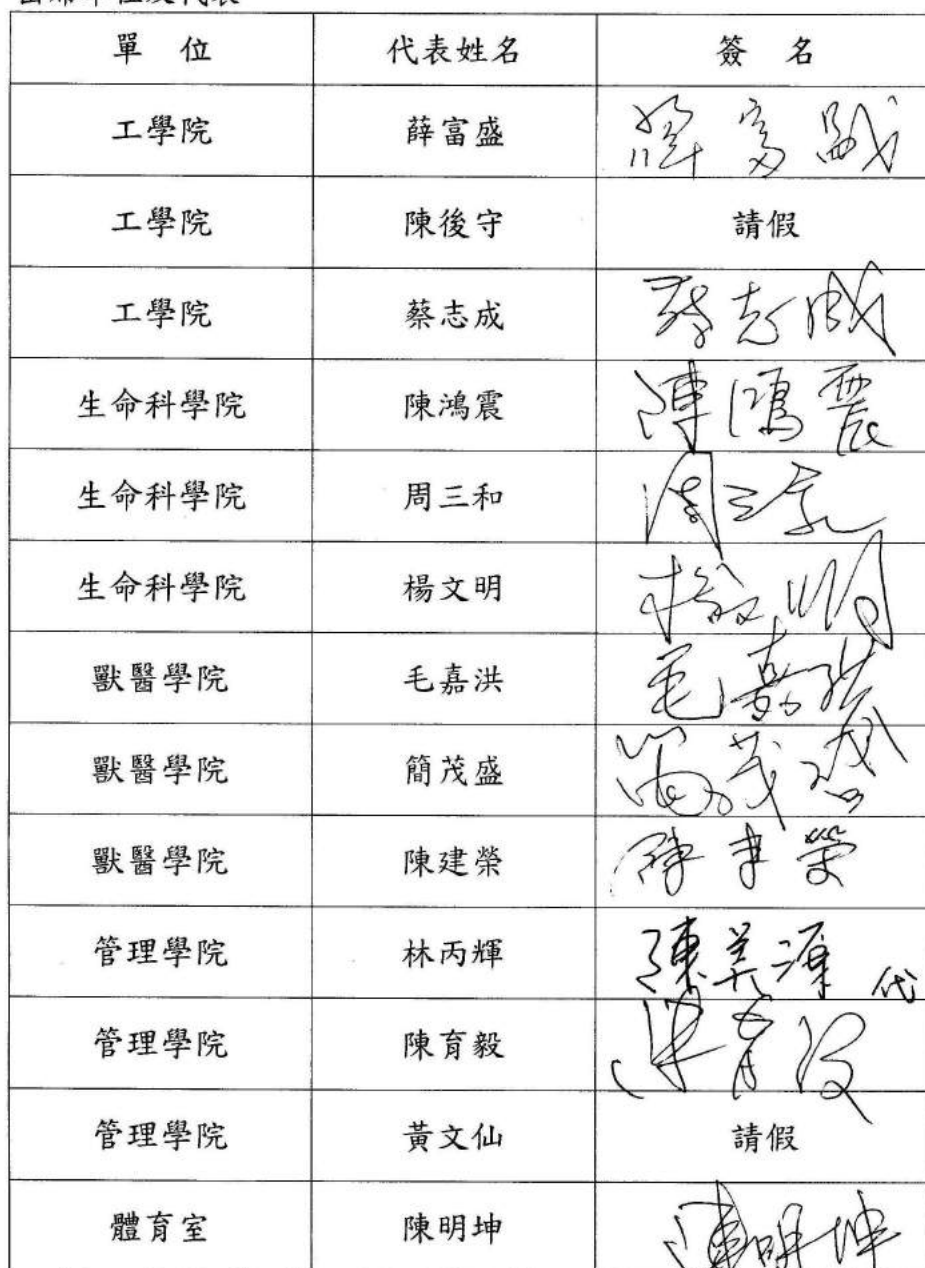 單 位 代表姓名 簽 名
工學院 薛富盛 薛富盛
工學院 陳後守 請假
工學院 蔡志成 蔡志成
生命科學院 陳鴻震 陳鴻震
生命科學院 周三和 周三和
生命科學院 楊文明 楊文明
獸醫學院 毛嘉洪 毛嘉洪
獸醫學院 簡茂盛 簡茂盛
獸醫學院 陳建榮 陳建榮
管理學院 林丙輝 代
管理學院 陳育毅 陳育毅
管理學院 黃文仙 請假
體育室 陳明坤 陳明坤